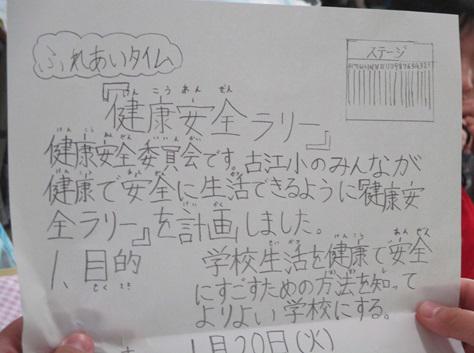 ふれあいタイム
ステージ
『健康安全ラリー』
健康安全委員会です。古江小のみんなが
健康で安全に生活できるように『健康安
全ラリー』を計画しました。
1、目的
学校生活を健康で安全
にすごすための方法を知って
よりよい学校にする。
1月20日(火)